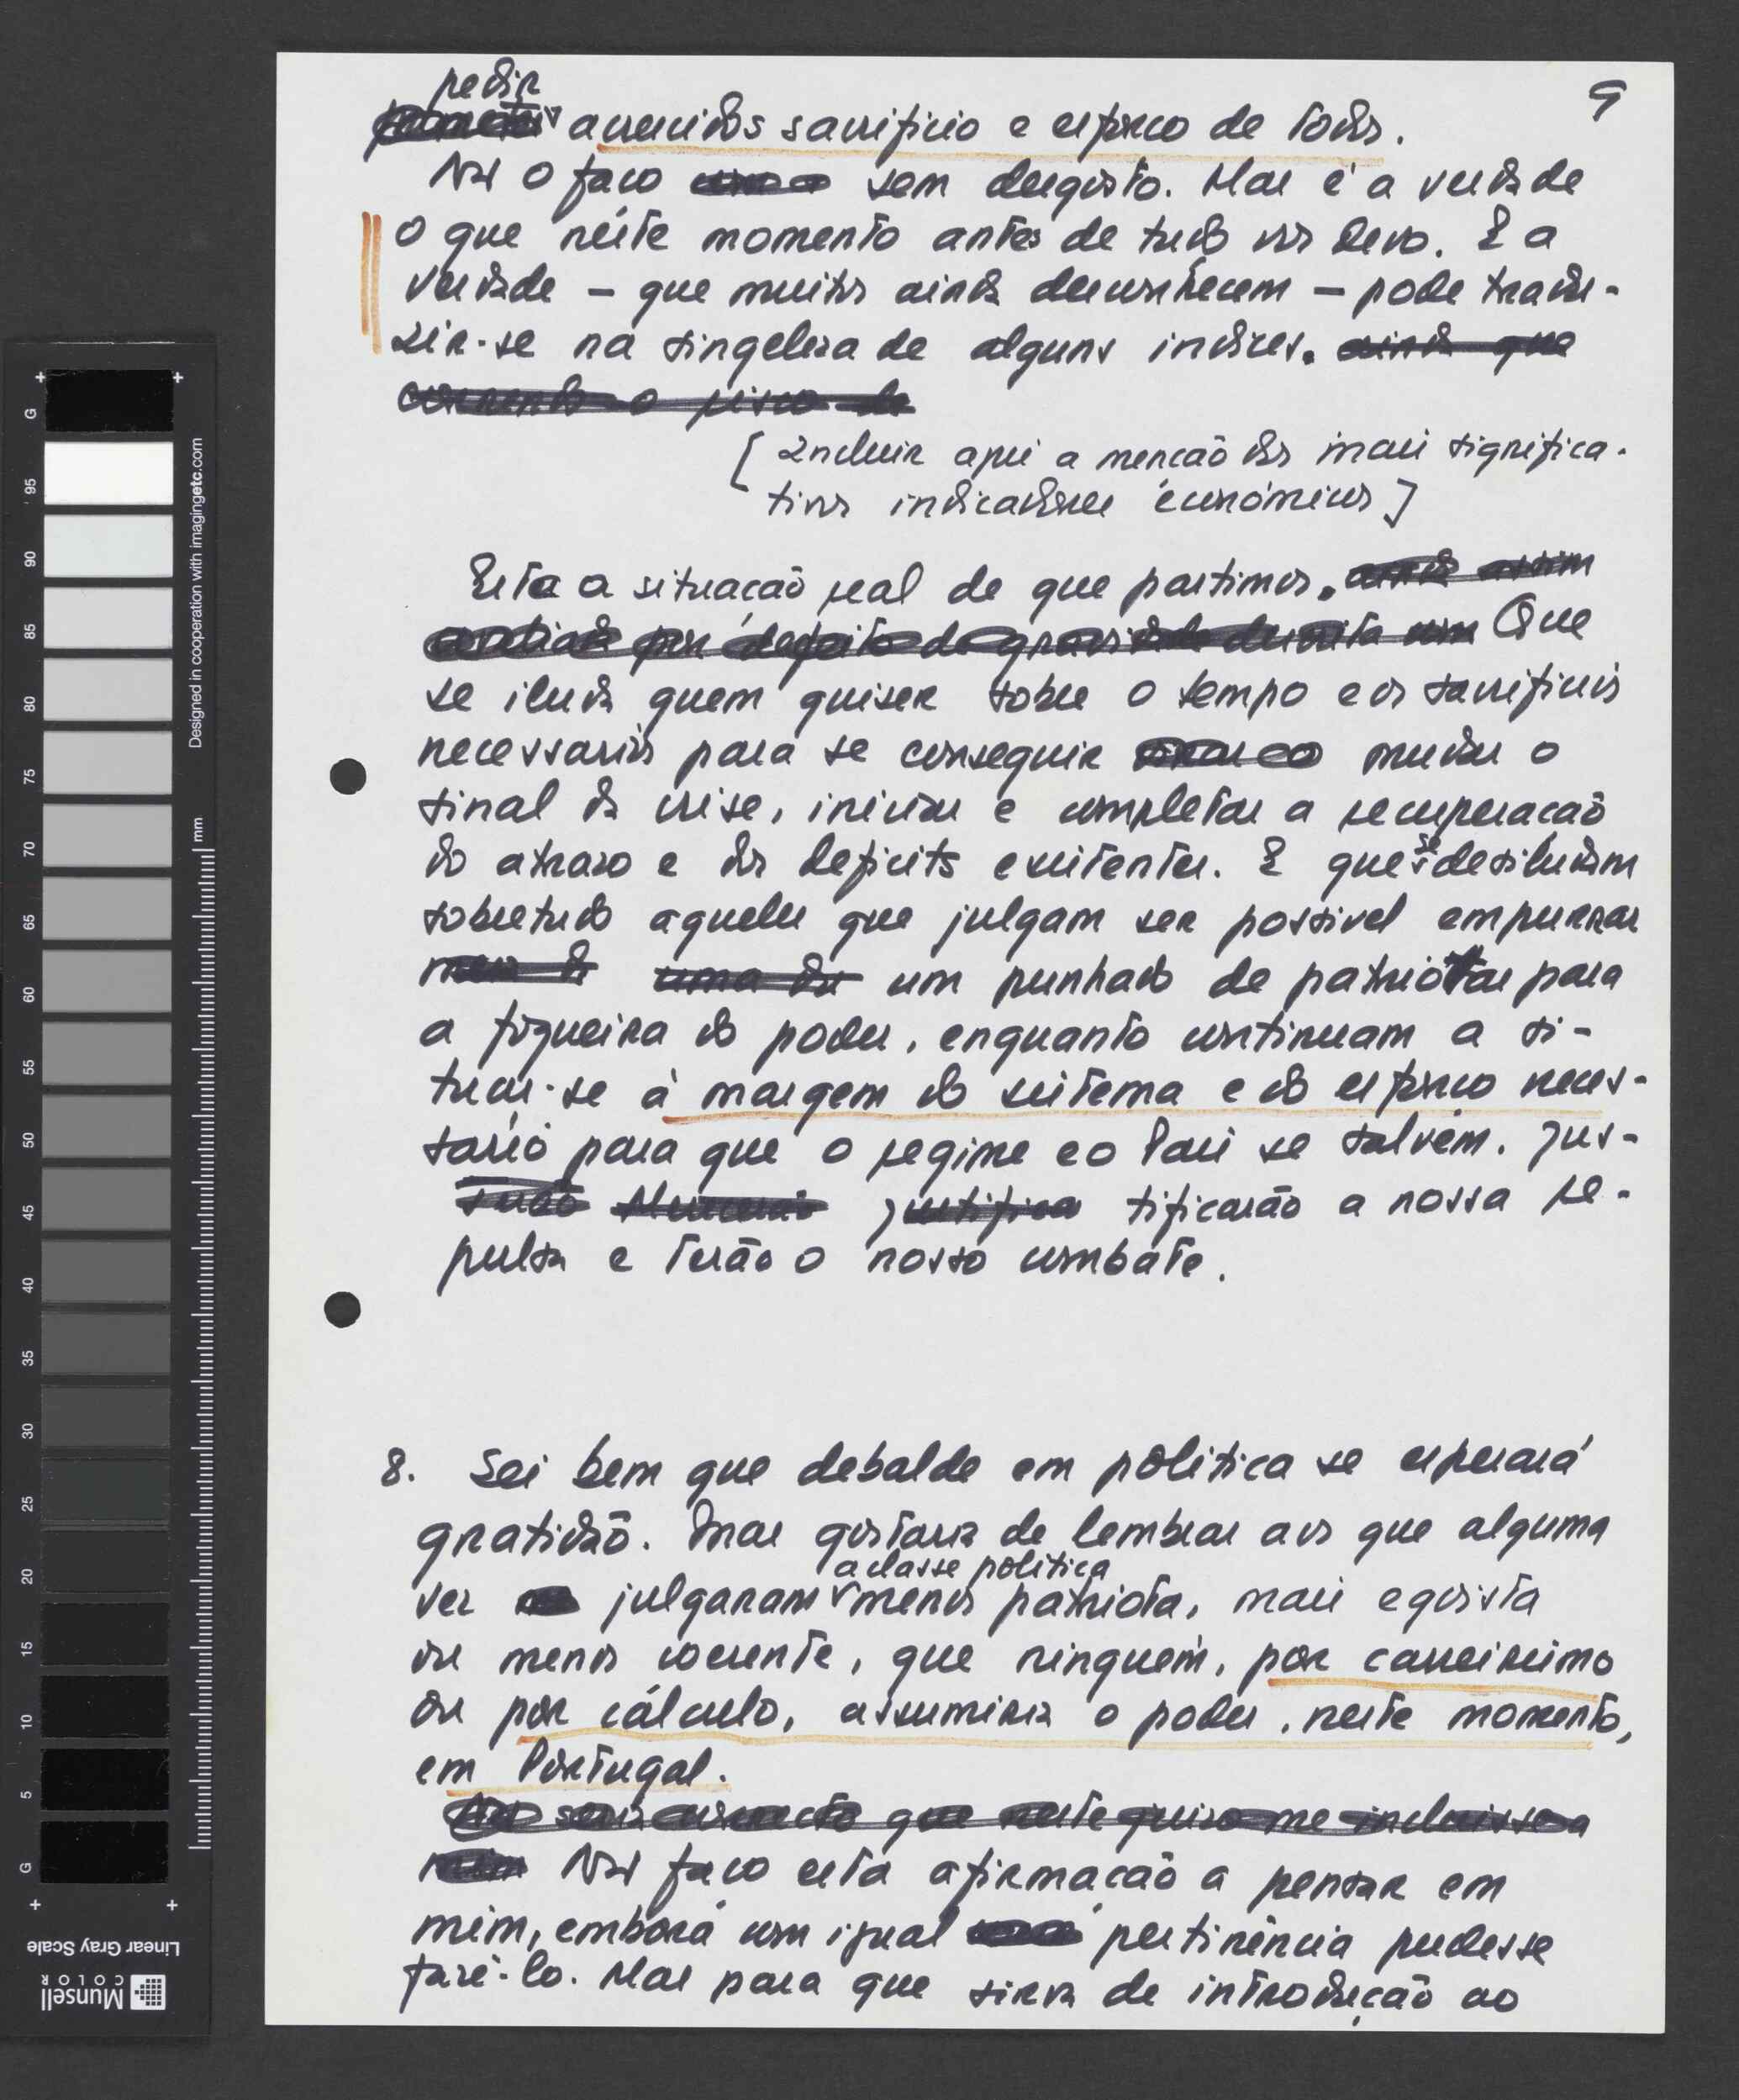 9
pedir
acrescidos sacrifício e esforço de todos.
Não o faço sem desgosto. Mas é a verdade
o que neste momento antes de tudo vos devo. E a
verdade - que muitos ainda desconhecem - pode tradu-
zir-se na singeleza de alguns índices. ainda que
correndo o risco de
[Incluir aqui a menção dos mais significa-
tivos indicadores económicos]
Esta a situação real de que partimos. ainda assim
Que
se iluda quem quiser sobre o tempo e os sacrifícios
necessários para se conseguir mudar o
sinal da crise, iniciar e completar a recuperação
do atraso e dos deficits existentes. E que se desiludam
sobretudo aqueles que julgam ser possivel empurrar
um punhado de patriotas para
a fogueira do poder, enquanto continuam a si-
tuar-se à margem do sistema e do esforço neces-
sário para que o regime e o País se salvem. Jus-
justifica tificarão a nossa re-
pulsa e terão o nosso combate.
8. Sei bem que debalde em política se esperará
gratidão. Mas gostaria de lembrar aos que alguma
a classe política
vez julgaram menos patriota, mais egoísta
ou menos coerente, que ninguém, por carreirismo
ou por cálculo, assumiria o poder, neste momento,
em Portugal.
Não seria correcto que neste juízo me incluísse a
mim Não faço esta afirmação a pensar em
mim, embora com igual pertinência pudesse
fazê-lo. Mas para que sirva de introdução ao
+ +
G 95 90 85 80 75 70 65 60 55 50 45 40 35 30 25 20 15 10 5 G
mm
Designed in cooperation with imagingetc.com
+ +
Linear Gray Scale
Munsell
COLOR